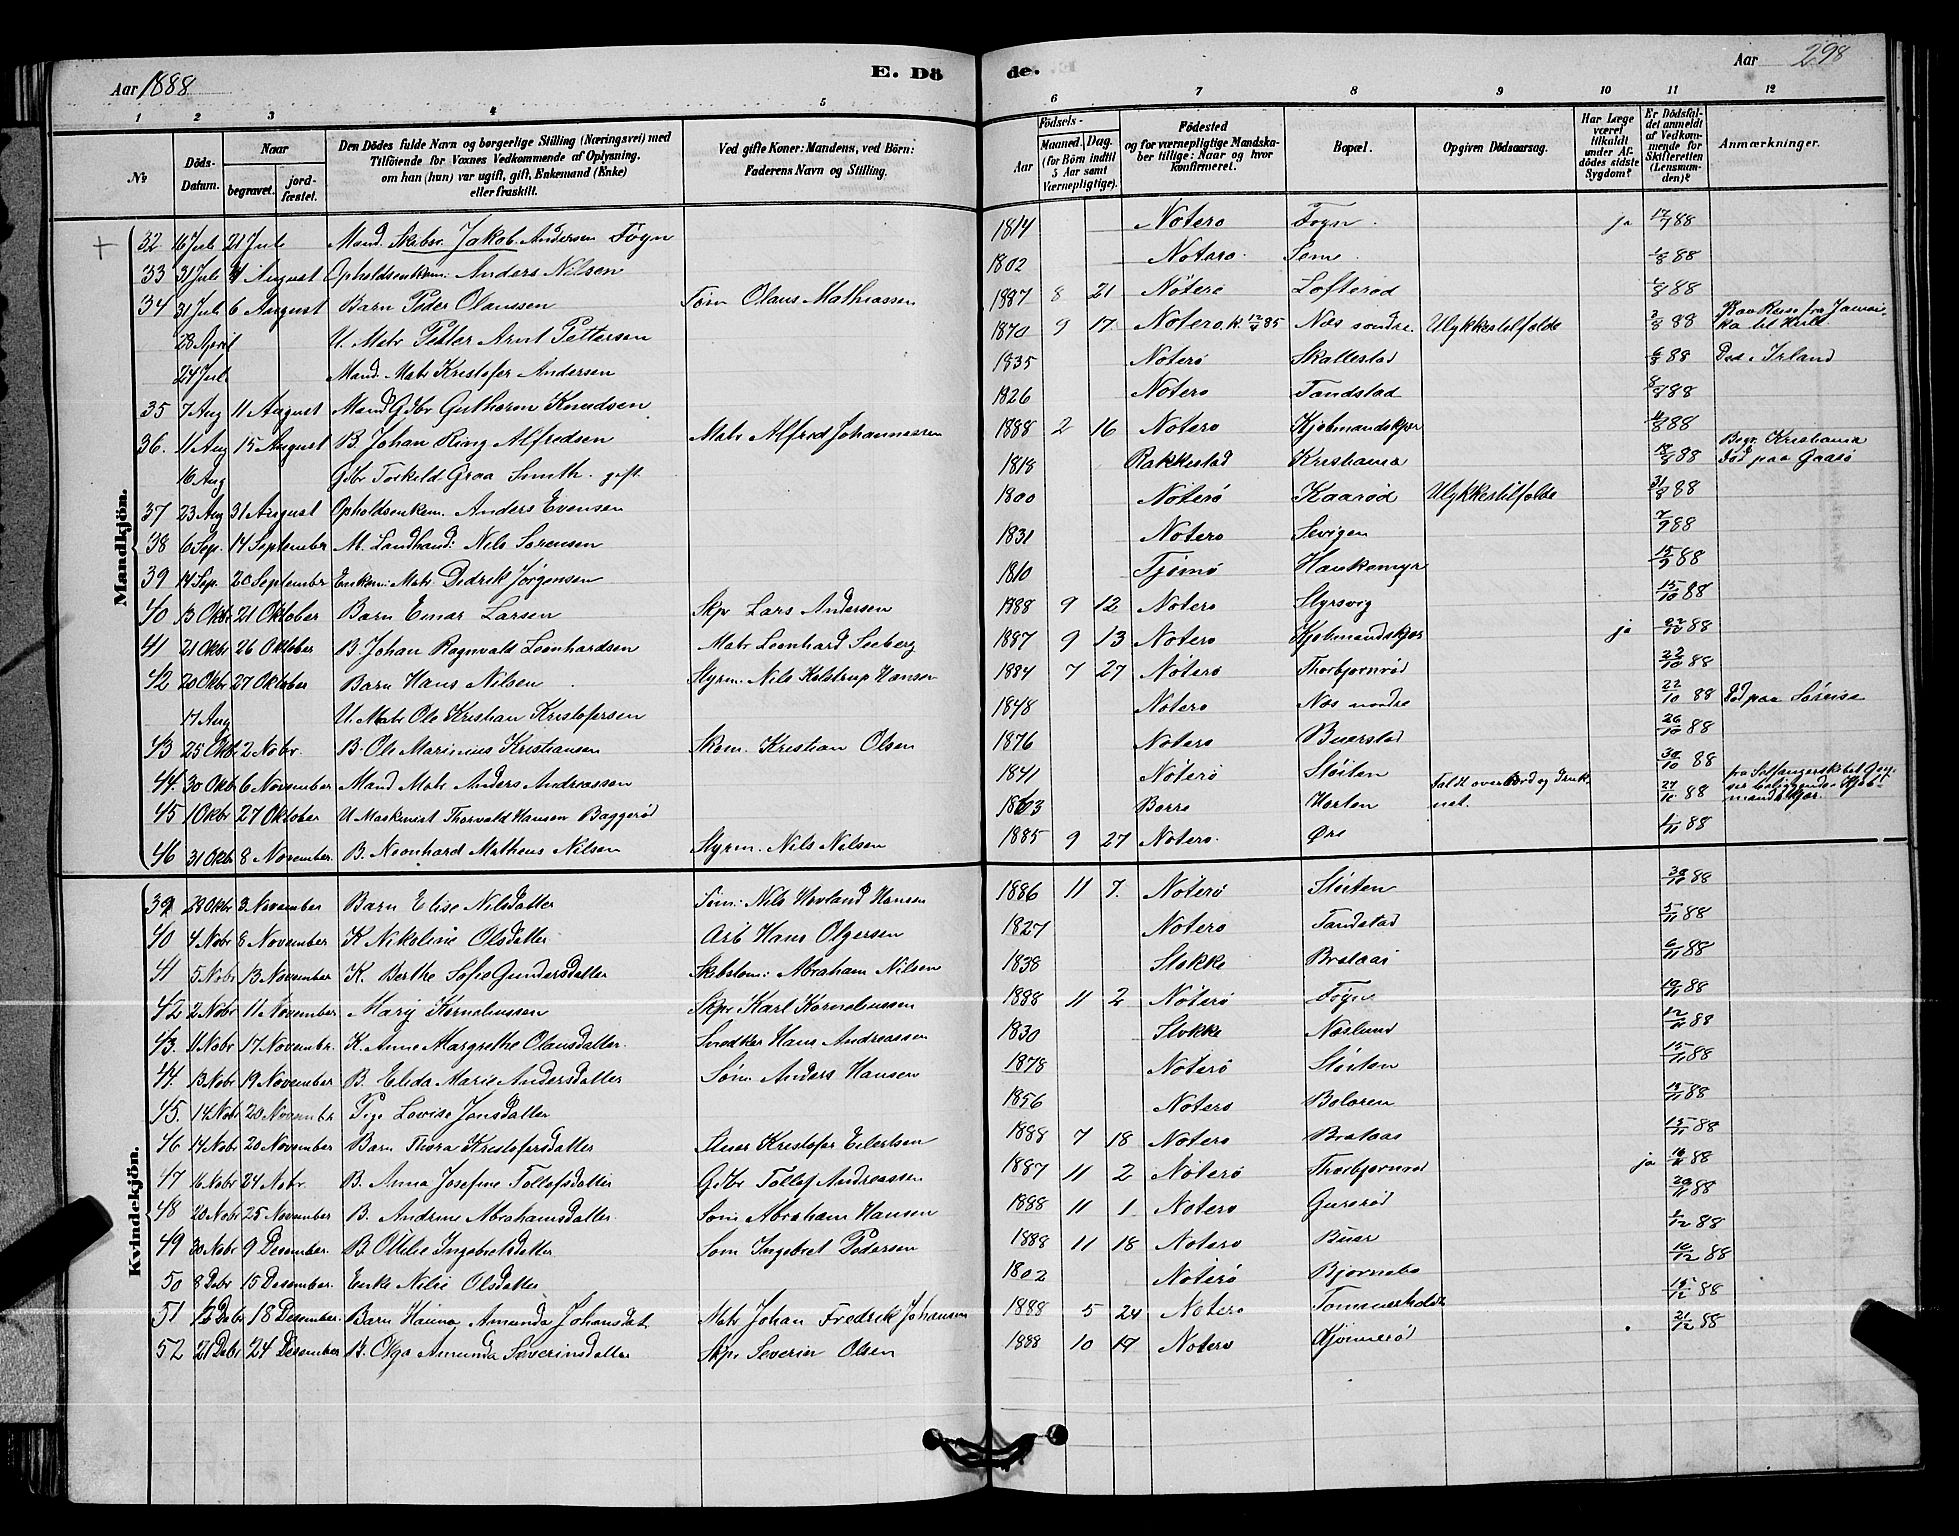 Aar 1888 E. Dö de. Aar 298
1 2 3 4 5 6 7 8 9 10 11 12
№ Döds-Datum. Naar begravet. jord-fæstet. Den Dödes fulde Navn og borgerlige Stilling (Næringsvei) med Tilföiende for Voxnes Vedkommende af Oplysning. om han (hun) var ugift, gift, Enkemand (Enke) eller fraskilt. Ved gifte Koner: Mandens, ved Börn: Faderens Navn og Stilling. Födsels- Aar Maaned. Dag. (for Börn indtil 5 Aar samt Værnepligtige). Födested og for værnepligtige Mandska-ber tillige: Naar og hvor konfirmeret. Bopæl. Opgiven Dödsaarsag. Har Læge været tilkaldt under Af-dödes sidste Sygdom? Er Dödsfal-det anmeldt af Vedkom-mende for Skifteretten (Lensman-den)? Anmærkninger.
Mandkjön.
32 16 Juli 21 Juli Mand. Skibsr. Jakob Andersen Fögn 1814 Nøterø Fögn ja 17/7 88
33 31 Juli 4 August Opholdsenkem: Anders Nilsen 1802 Nøterø Sem 1/8 88
34 31 Juli 6 August Barn Peder Olaussen Søm Olaus Mathiassen 1887 8 21 Nøterø Lofterød 1/8 88
28 April U. Matr Petter Arnt Pettersen 1870 9 17 Nøterø, k. 12/4 85 Næs søndre Ulykkestilfælde 2/8 88 Paa Reise fra Jamai-ka til Hull
27 Juli Mand. Matr Kristofer Andersen 1835 Nøterø Skallestad 6/8 88 Død i Irland
35 7 Aug 11 August Mand Gdbr Guthorm Knudsen 1826 Nøterø Tandstad 8/8 88
36. 11 Aug 15 August B. Johan Ring Alfredsen Matr Alfred Johannessen 1888 2 16 Nøterø Kjøbmandskjær 11/8 88
16 Aug Gdbr Torkeld Graa Smith. gift 1818 Rakkestad Kristiania 18/8 88 Begr. Kristiania Død paa Gaasø
37 23 Aug 31 August Opholdsenkem. Anders Evensen 1800 Nøterø Kaarød Ulykkestilfælde 31/8 88
38 6 Sep. 14 September M. Landhand: Nils Sørensen 1831 Nøterø Sevigen 7/9 88
39 14 Sep. 20 September Enkem: Matr Didrik Jørgensen 1810 Tjømø Haukemyr 15/9 88
40 13 Oktr 21 Oktober Barn Einar Larsen Skpr Lars Andersen 1888 9 12 Nøterø Styrsvig 15/10 88
41 21 Oktr 26 Oktober B. Johan Ragnvald Leonhardsen Matr Leonhard Seeberg 1887 9 13 Nøterø Kjøbmandskjær ja 22/10 88
42 20 Oktr 27 Oktober Barn Hans Nilsen Styrm. Nils Kolstrup Hansen 1884 7 27 Nøterø Thorbjørnrød 22/10 88
17 Aug U. Matr Ole Kristian Kristofersen 1848 Nøterø Næs nordre 22/10 88 Død paa Søreise
43 25 Oktb. 2 Nobr. B. Ole Marinius Kristiansen Skom. Kristian Olsen 1876 Nøterø Buerstad 26/10 88
44. 30 Oktbr 6 November Mand Matr Anders Andreassen 1841 Nøterø Støiten 30/10 88
45 1 Oktbr 27 Oktober U Maskinist Thorvald Hansen Baggerød 1863 Borre Horten Faldt overbord og druk-net. 27/10 88
46 31 Oktbr 8 November. B. Neonhard Matheus Nilsen Styrm. Nils Nilsen 1885 9 27 Nøterø. Øre 1/11 88
Kvindekjön.
39 29 Oktr 3 November Barn Elise Nilsdatter Søm: Nils Havland Hansen 1886 11 7. Nøterø Støiten 30/10 88
40 4 Nobr 8 November K Nikoline Olsdatter Arb Hans Olgersen 1827 Nøterø Tandstad 5/11 88
41 5 Nobr 13 November K. Berthe Sofie Gundersdatter Skbstøm: Abraham Nilsen 1838 Stokke Brataas 6/11 88
42 2 Nobr 11 November Mary Korneliussen Skpr Karl Korneliussen 1888 11 2 Nøterø Fögn 19/11 88
43. 11 Nobr 17 Novembr. K. Anne Margrethe Olausdatter Snedker Hans Andreassen 1830 Stokke Næslund 12/11 88
44. 13 Nobr 19 November B. Elida Marie Andersdatter Søm. Anders Hansen 1878 Nøterø Støiten 15/11 88
45. 14 Nobr 20 Novembr Pige Lovise Jansdatter 1856 Nøterø Bolæren 15/11 88
46 14 Nobr 20 November Barn Thora Kristofersdatter Stuer Kristofer Eilertsen 1888 7 18 Nøterø Brataas 15/11 88
47 16 Nobr 24 Nobr. B. Anna Josefine Tollefsdatter Gdbr Tollef Andreassen 1887 11 2 Nøterø Thorbjørnrød ja 16/11 88
48 20 Nobr 25 November B. Andrine Abrahamsdatter Søm Abraham Hansen 1888 11 1 Nøterø Gursrød 20/11 88
49 30 Nobr 9 Desember. B. Ottilie Ingebretsdatter Søm Ingebret Pedersen 1888 11 18 Nøterø Buer 1/12 88
50 8 Debr 15 Desember. Enke Nilie Olsdatter 1802 Nøterø Bjørnebo 10/12 88
51 13 Debr 18 Desember. Barn Hanna Amunda Johansdat Matr Johan Fredrik Johansen 1888 5 24 Nøterø Tømmerholdt 15/12 88
52 21 Debr 24 Desember B. Olga Amunda Severinsdatter Skpr Severin Olsen 1888 10 19 Nøterø Gjømnerød 21/12 88